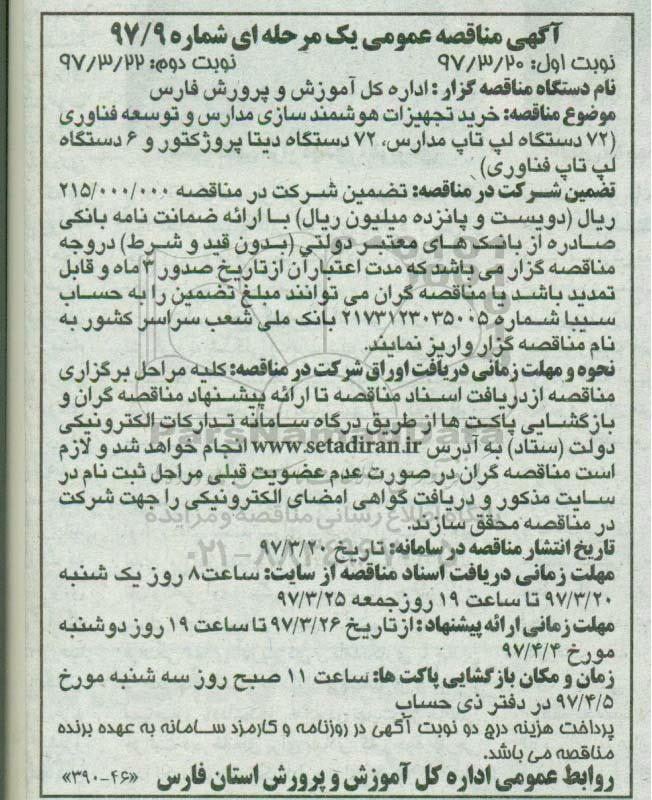 آگهی مناقصه عمومی یک مرحله ای شماره ۹۷/۹
نوبت اول: ۹۷/۳/۲۰ نوبت دوم: ۹۷/۳/۲۲
نام دستگاه مناقصه گزار: اداره کل آموزش و پرورش فارس
موضوع مناقصه: خرید تجهیزات هوشمند سازی مدارس و توسعه فناوری
(۷۲ دستگاه لپ تاپ مدارس، ۷۲ دستگاه دیتا پروژکتور و ۶ دستگاه
لپ تاپ فناوری)
تضمین شرکت در مناقصه: تضمین شرکت در مناقصه ۲۱۵/۰۰۰/۰۰۰
ریال (دویست و پانزده میلیون ریال) با ارائه ضمانت نامه بانکی
صادره از بانک های معتبر دولتی (بدون قید و شرط) در وجه
مناقصه گزار می باشد که مدت اعتبار آن از تاریخ صدور ۳ ماه و قابل
تمدید باشد یا مناقصه گران می توانند مبلغ تضمین را به حساب
سیبا شماره ۲۱۷۳۱۲۳۰۳۵۰۰۵ بانک ملی شعب سراسر کشور به
نام مناقصه گزار واریز نمایند.
نحوه و مهلت زمانی دریافت اوراق شرکت در مناقصه: کلیه مراحل برگزاری
مناقصه از دریافت اسناد مناقصه تا ارائه پیشنهاد مناقصه گران و
بازگشایی پاکت ها از طریق درگاه سامانه تدارکات الکترونیکی
دولت (ستاد) به آدرس www.setadiran.ir انجام خواهد شد و لازم
است مناقصه گران در صورت عدم عضویت قبلی مراحل ثبت نام در
سایت مذکور و دریافت گواهی امضای الکترونیکی را جهت شرکت
در مناقصه محقق سازند.
تاریخ انتشار مناقصه در سامانه: تاریخ ۹۷/۳/۲۰
مهلت زمانی دریافت اسناد مناقصه از سایت: ساعت ۸ روز یک شنبه
۹۷/۳/۲۰ تا ساعت ۱۹ روز جمعه ۹۷/۳/۲۵
مهلت زمانی ارائه پیشنهاد: از تاریخ ۹۷/۳/۲۶ تا ساعت ۱۹ روز دوشنبه
مورخ ۹۷/۴/۴
زمان و مکان بازگشایی پاکت ها: ساعت ۱۱ صبح روز سه شنبه مورخ
۹۷/۴/۵ در دفتر ذی حساب
پرداخت هزینه درج دو نوبت آگهی در روزنامه و کارمزد سامانه به عهده برنده
مناقصه می باشد.
روابط عمومی اداره کل آموزش و پرورش استان فارس «۳۹۰-۴۶»